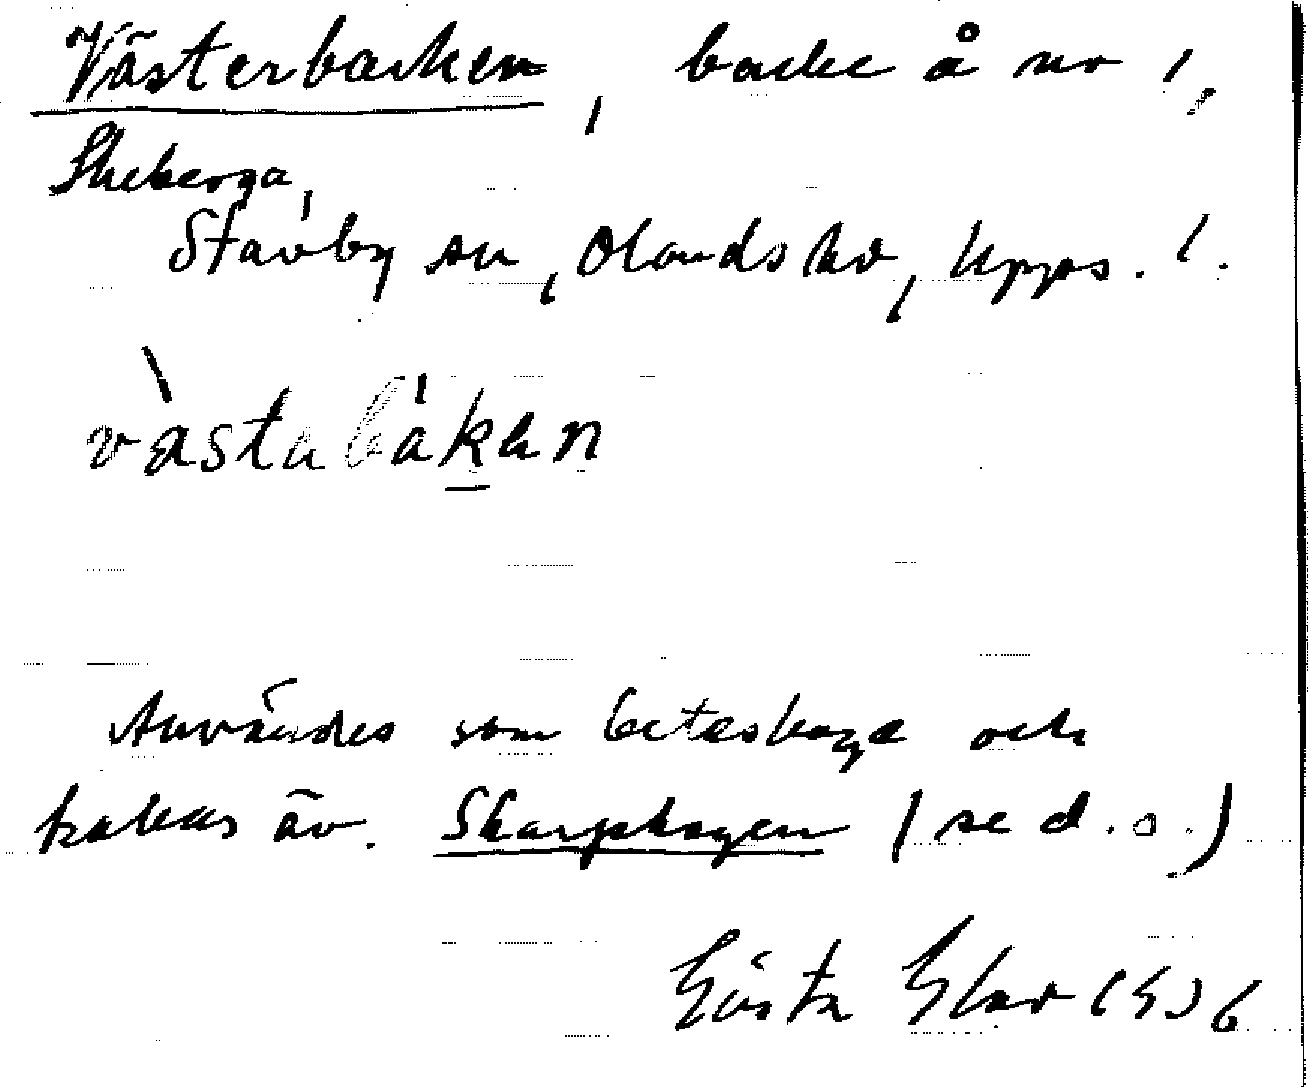 Västerbacken, backe å nr 1,
Skeberga,
Stavby sn, Olands hd, Upps. l.
vàstabákan
Användes som beteshage och
kallas äv. Skarphagen (se d.o.)
Gösta 1936